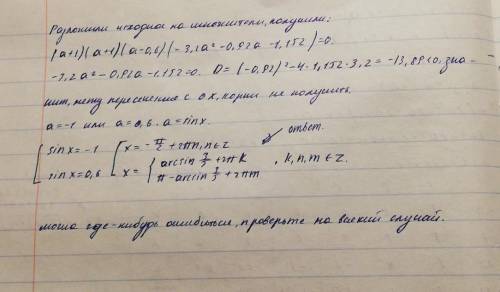 Разложили исходное на множители, получили:
(a+1)(a+1)(a-0,6)(-3,2a²-0,92a-1,152)=0.
-3,2a²-0,92a-1,152=0. D=(-0,92)²-4·1,152·3,2=-13,89<0, зна-
чит, нету пересечения с ox, корни не получить.
a=-1 или a=0,6. a=sinx.
sinx=-1 x=-π/2+2πn, n∈Z ответ.
sinx=0,6 x= arcsin 3/5+2πk
π-arcsin 3/5+2πm , k,n,m∈Z.
могла где-нибудь ошибиться, проверьте на всякий случай.